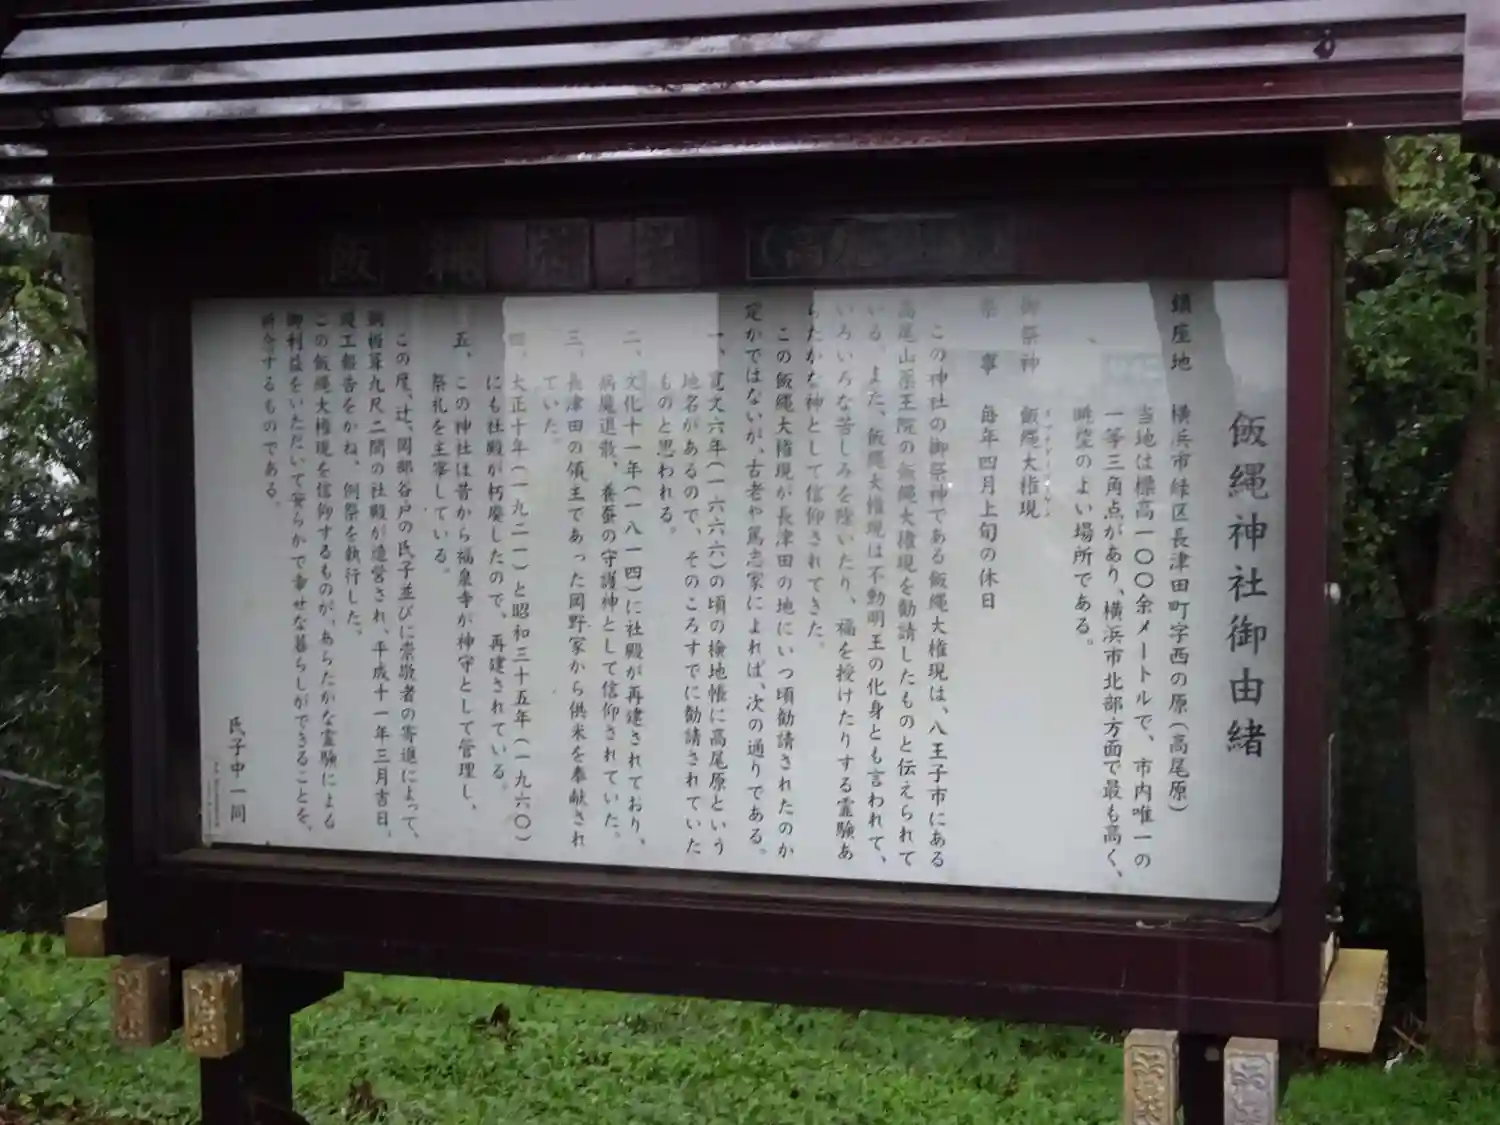 飯縄神社御由緒
鎮座地 横浜市緑区長津田町字西の原(高尾原)
当地は標高一〇〇余メートルで、市内唯一の
一等三角点があり、横浜市北部方面で最も高く、
眺望のよい場所である。
御祭神 飯縄大権現
祭事 毎年四月上旬の休日
この神社の御祭神である飯縄大権現は、八王子市にある
高尾山薬王院の飯縄大権現を勧請したものと伝えられて
いる。また、飯縄大権現は不動明王の化身とも言われて、
いろいろな苦しみを除いたり、福を授けたりする霊験あ
らたかな神として信仰されてきた。
この飯縄大権現が長津田の地にいつ頃勧請されたのか
定かではないが、古老や篤志家によれば、次の通りである。
一、寛文六年(一六六六)の頃の検地帳に高尾原という
地名があるので、そのころすでに勧請されていた
ものと思われる。
二、文化十一年(一八一四)に社殿が再建されており、
病魔退散、養蚕の守護神として信仰されていた。
三、長津田の領主であった岡野家から供米を奉献され
ていた。
四、大正十年(一九二一)と昭和三十五年(一九六〇)
にも社殿が朽廃したので、再建されている。
五、この神社は昔から福泉寺が神守として管理し、
祭礼を主宰している。
この度、辻、岡部谷戸の氏子並びに崇敬者の寄進によって、
銅板葺九尺二間の社殿が造営され、平成十一年三月吉日、
竣工報告をかね、例祭を執行した。
この飯縄大権現を信仰するものが、あらたかな霊験による
御利益をいただいて安らかで幸せな暮らしができることを、
祈念するものである。
氏子中一同